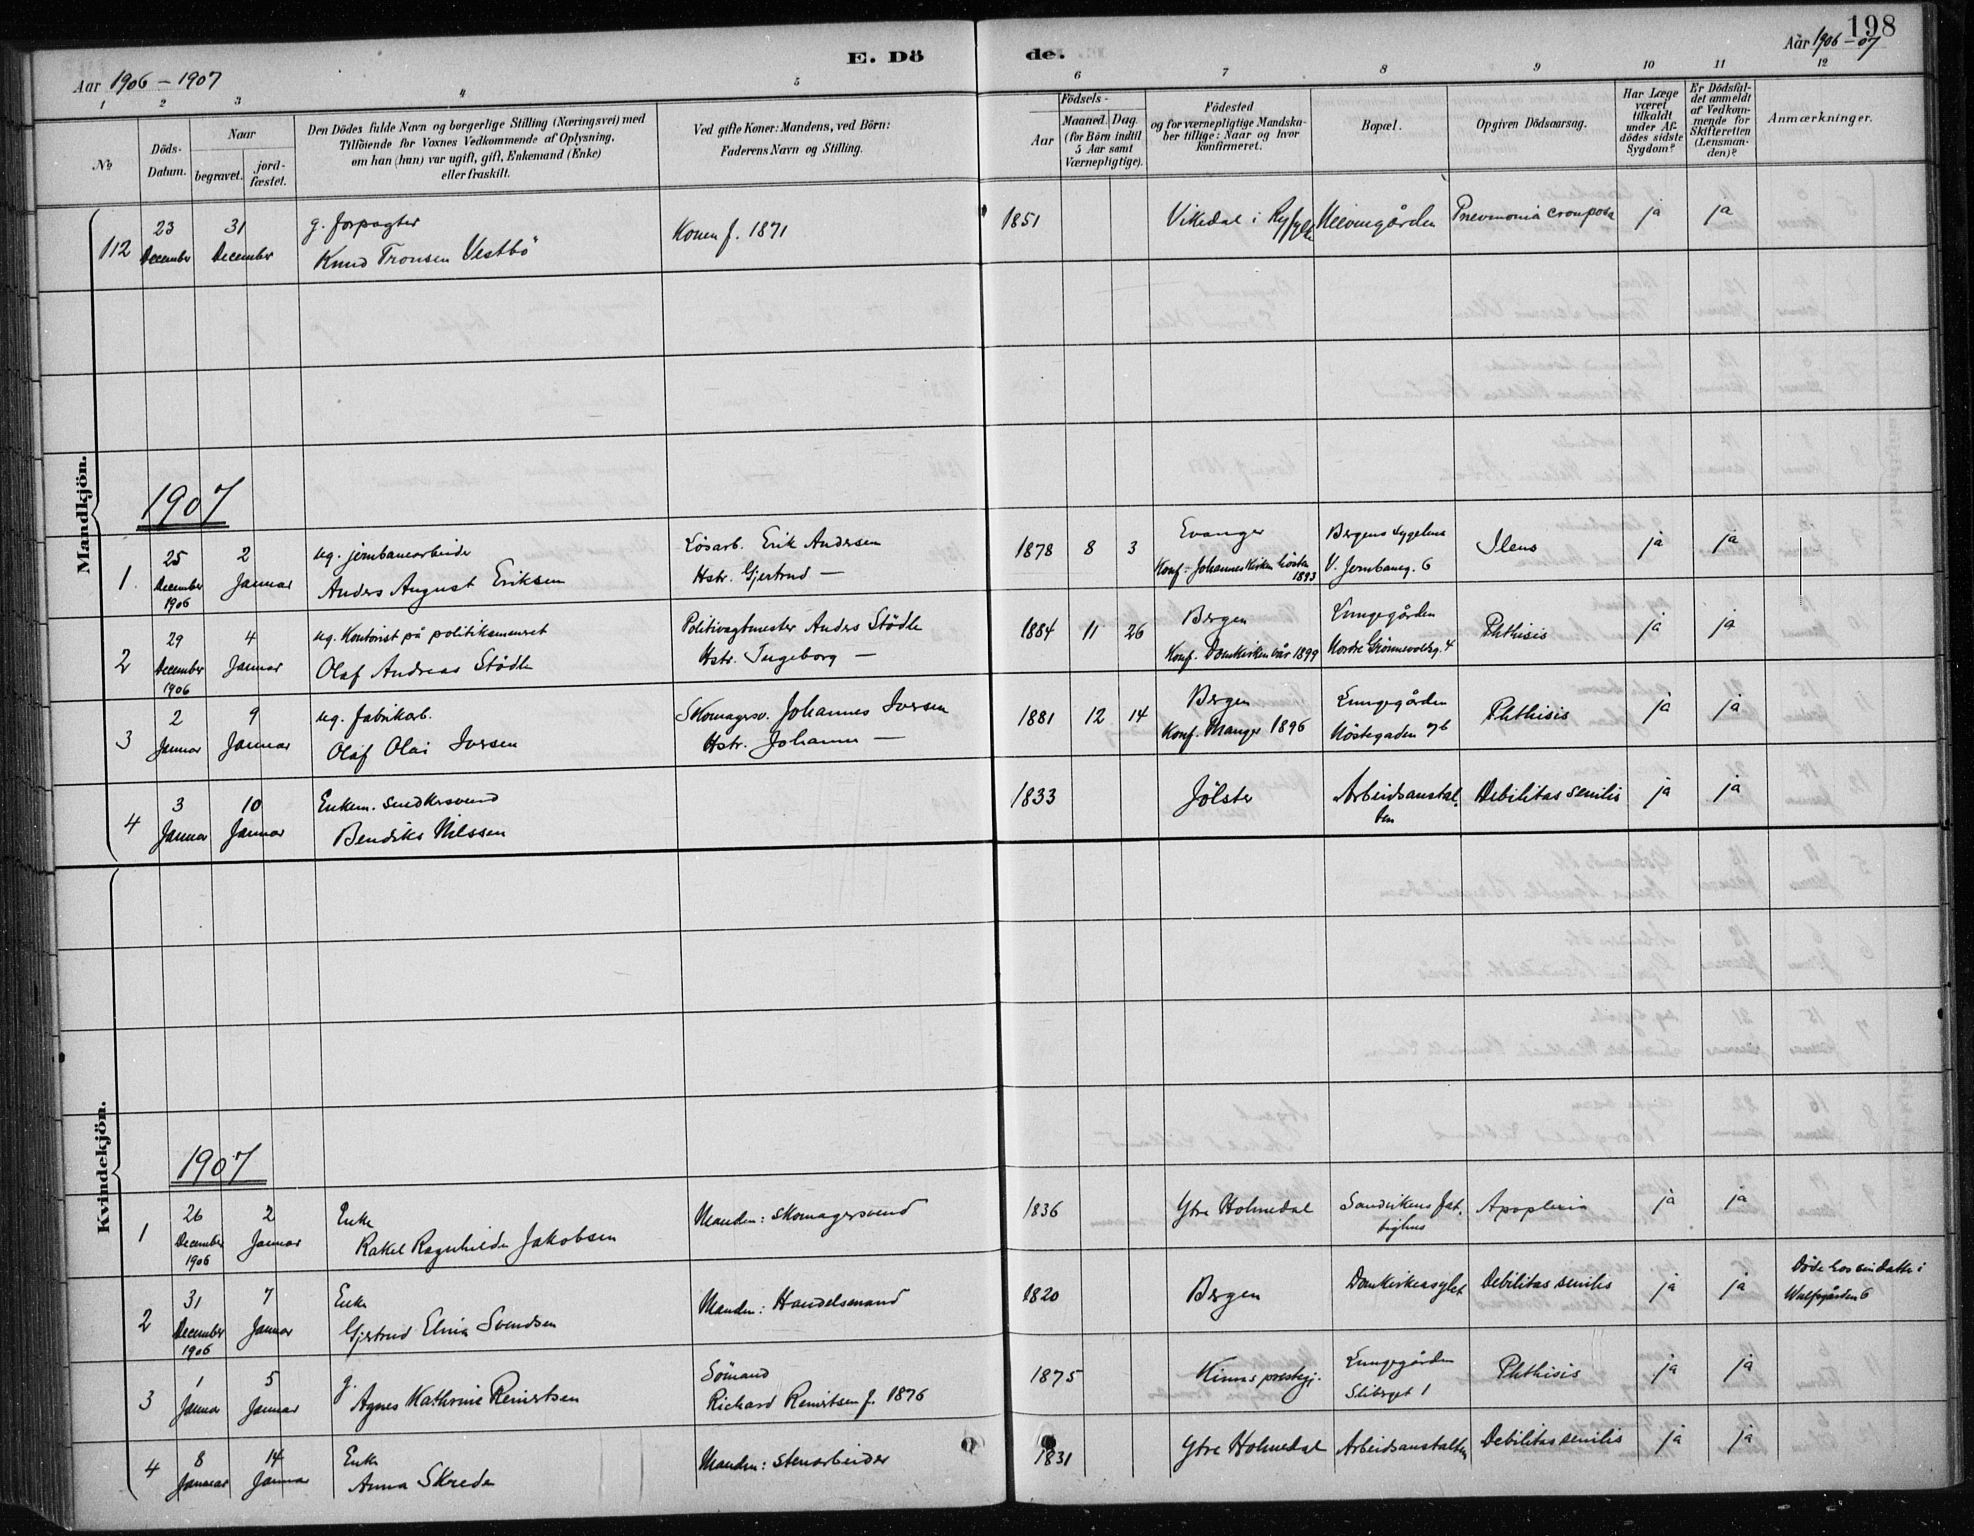 198
E. Döde.
Aar 1906 - 1907
Aar 1906 - 07
1 2 3 4 5 6 7 8 9 10 11 12
No
Döds-Datum.
Naar
begravet. jord-fæstet.
Den Dödes fulde Navn og borgerlige Stilling (Næringsvei) med
Tilföiende for Voxnes Vedkommende af Oplysning,
om han (hun) var ugift, gift, Enkemand (Enke)
eller fraskilt.
Ved gifte Koner: Mandens, ved Börn:
Faderens Navn og Stilling.
Födsels-
Aar
Maaned. Dag.
(for Börn indtil
5 Aar samt
Værnepligtige).
Födested
og for værnepligtige Mandska-
ber tillige: Naar og hvor
konfirmeret.
Bopæl.
Opgiven Dödsaarsag.
Har Læge
været
tilkaldt
under Af-
dödes sidste
Sygdom?
Er Dödsfal-
det anmeldt
af Vedkom-
mende for
Skifteretten
(Lensman-
den)?
Anmærkninger.
Mandkjön.
112 23 December 31 December g. forpagter
Knud Tronsen Vestbö Konen f. 1871 1851 Vikedal i Ryfylke Pneumonia crouposa ja ja
1907
1. 25 December 1906 2 Januar ug. jernbanearbeider
Anders August Eriksen Lösarb. Erik Andersen
Hstr. Gjertrud — 1878 8 3 Evanger
Konf. Johanneskirken hösten 1893 Bergens sygehus
V. Jernbaneg. 6 Ileus ja ja
2 29 December 1906 4 Januar ug. Kontorist på politikammeret
Olaf Andreas Stödle Politivagtmester Anders Stödle
Hstr. Ingeborg — 1884 11 26 Bergen
Konf. Domkirken vår 1899 Lungegården
Nordre Grönnevoldsg. 4 Phthisis ja ja
3 2 Januar 9 Januar ug. fabrikarb.
Olaf Olai Iversen Skomagersv. Johannes Iversen
Hstr. Johanne — 1881 12 14 Bergen
Konf. Manger 1896 Lungegården
Nöstegaden 76 Phthisis ja ja
4 3 Januar 10 Januar Enkem. snedkersvend
Bendiks Nilssen 1833 Jölster Arbeidsanstalten Debilitas senilis ja ja
Kvindekjön.
1907
1 26 December 1906 2 Januar Enke
Rakel Ragnhilde Jakobsen Manden: skomagersvend 1836 Ytre Holmedal Sandvikens fattighus Apoplexia ja ja
2 31 December 1906 7 Januar Enke
Gjertrud Elina Svendsen Manden: Handelsmand 1820 Bergen Domkirkeasylet Debilitas senilis ja ja Döde hos sin datter i
Wulfsgården 6
3 1 Januar 5 Januar g.
Agnes Kathrine Reinertsen Sömand
Richard Reinertsen f. 1876 1875 Kinns prestegj. Lungegården
1 Phthisis ja ja
4 8 Januar 14 Januar Enke
Anna Skrede Manden: stenarbeider 1831 Ytre Holmedal Arbeidsanstalten Debilitas senilis ja ja